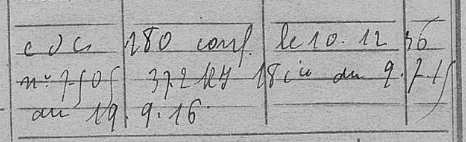 cdc 280 conf. le 10.12 36
n° 7505 372187 18cie du 9.7.15
au 19.9.16